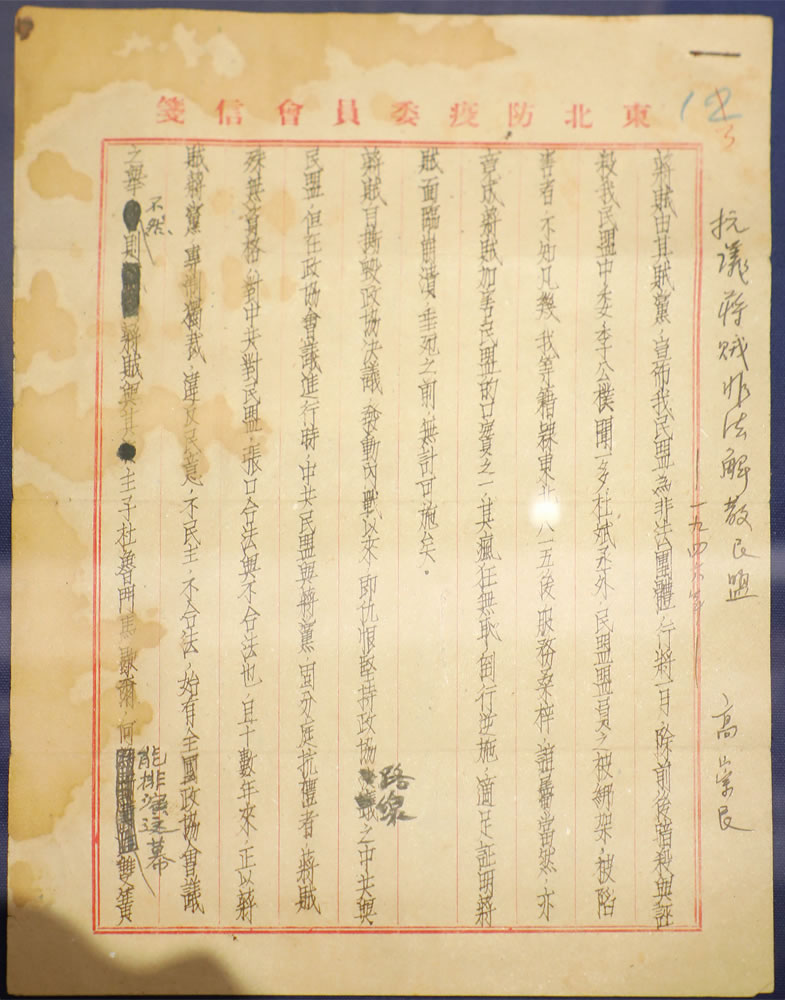 東北防疫委員會信箋
一
12
3
抗議蔣賊非法解散民盟 高崇民
一九四六年
蔣賊由其賊黨，宣布我民盟為非法團體，行將一月，除前後暗殺與誣
殺我民盟中委，李公樸聞一多杜斌丞外，民盟盟員之被綁架，被陷
害者，不知凡幾，我等籍隸東北，八一五後，服務桑梓，誰屬當然，亦
竟成蔣賊加害民盟的口實之一，其瘋狂無恥，倒行逆施，適足証明蔣
賊面臨崩潰，垂死之前，無計可施矣。
蔣賊自撕毀政協決議，發動內戰以來，即仇恨堅持政協路線之中共與
民盟，但在政協會議進行時，中共民盟與蔣黨，固分庭抗禮者，蔣賊
殊無資格，對中共對民盟，張口合法與不合法也，且十數年來，正以蔣
賊蔣黨，專制獨裁，違反民意，不民主，不合法，始有全國政協會議
之舉，不然，則蔣賊與其主子杜魯門馬歇爾，何能排演這幕雙簧